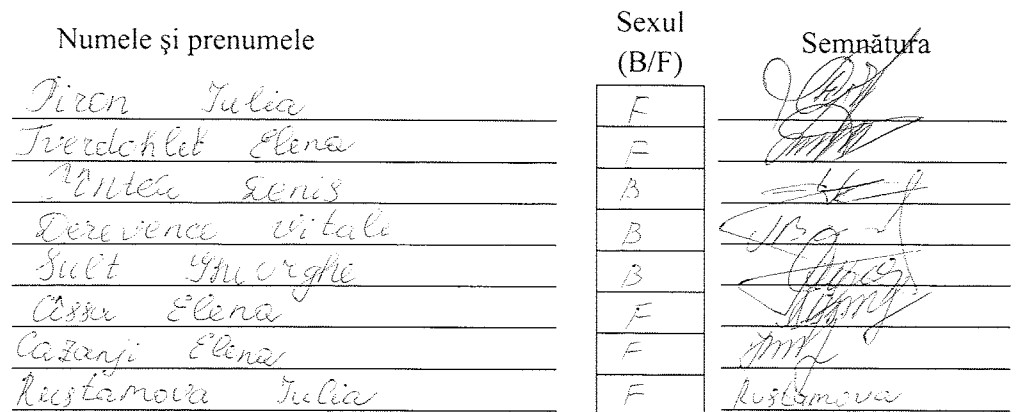 Numele şi prenumele Sexul (B/F) Semnătura
Piron Iulia F
Tverdohleb Elena F
Denis B
Derevenco Vitalie B
Sult Gheorghe B
Elena F
Cazanji Elena F
Rustamova Iulia F Rustamova